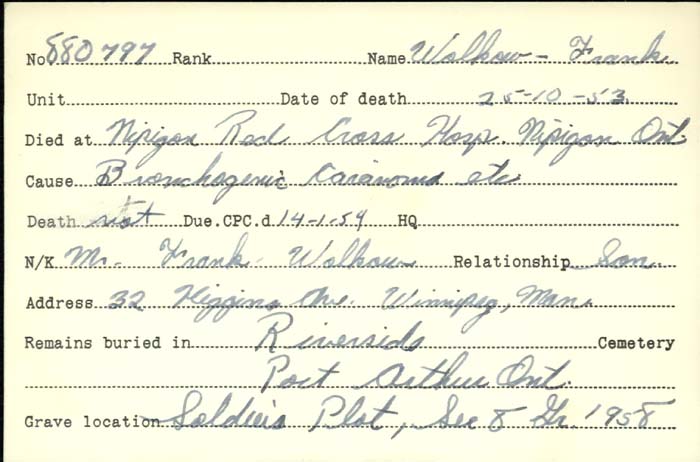 No 880797 Rank Name Wolkow - Frank
Unit Date of death 25-10-53
Died at Nipigon Red Cross Hosp. Nipigon Ont.
Cause Bronchogenic Carcinoma etc
Death not Due. CPC.d 14-1-54 HQ
N/K Mr. Frank Wolkow Relationship Son
Address 32 Higgins Ave. Winnipeg, Man.
Remains buried in Riverside Cemetery
Port Arthur Ont.
Grave location Soldiers Plot, Sec 8 Gr. 1958